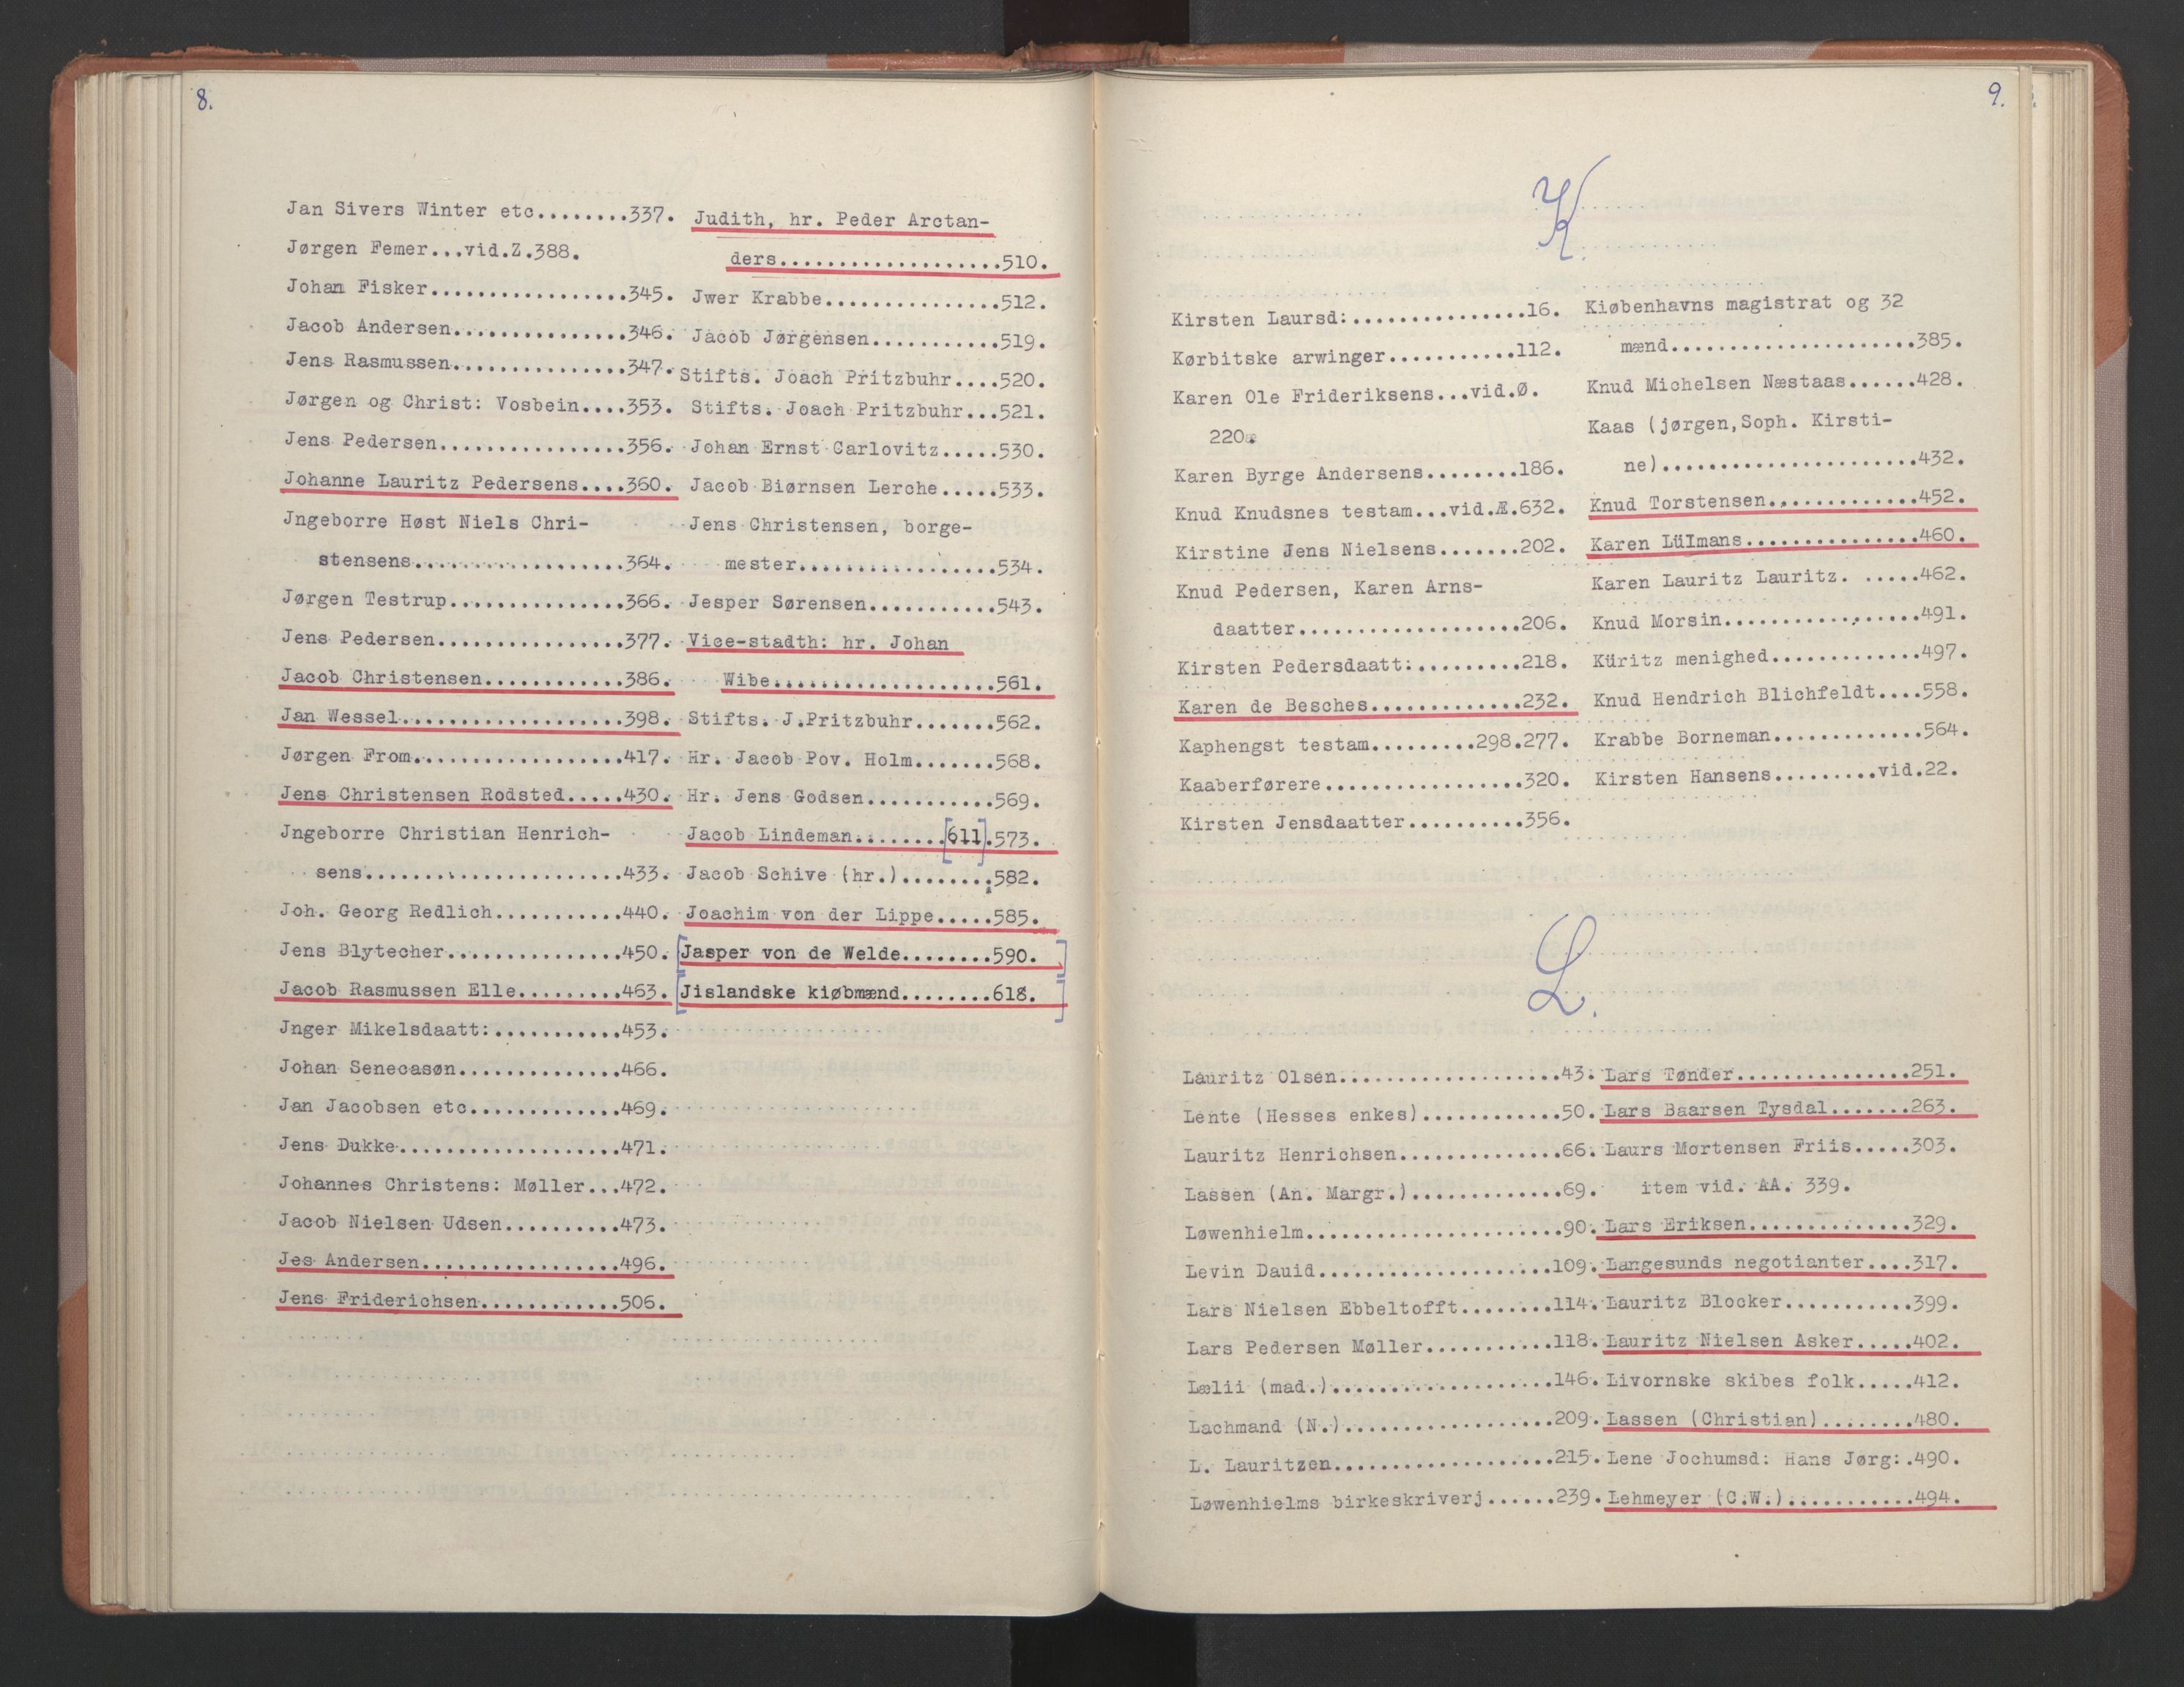 8.
Jan Sivers Winter etc........337.
Jørgen Femer...vid.Z.388.
Johan Fisker.................345.
Jacob Andersen...............346.
Jens Rasmussen...............347.
Jørgen og Christ: Vosbein....353.
Jens Pedersen................356.
Johanne Lauritz Pedersens....360.
Jngeborre Høst Niels Chri-
stensens..................364.
Jørgen Testrup...............366.
Jens Pedersen................377.
Jacob Christensen............386.
Jan Wessel...................398.
Jørgen From..................417.
Jens Christensen Rodsted.....430.
Jngeborre Christian Henrich-
sens......................433.
Joh. Georg Redlich...........440.
Jens Blytecher...............450.
Jacob Rasmussen Elle.........463.
Jnger Mikelsdaatt:...........453.
Johan Senecasøn..............466.
Jan Jacobsen etc.............469.
Jens Dukke...................471.
Johannes Christens: Møller...472.
Jacob Nielsen Udsen..........473.
Jes Andersen.................496.
Jens Friderichsen............506.
Judith, hr. Peder Arctan-
ders...................510.
Jwer Krabbe...............512.
Jacob Jørgensen...........519.
Stifts. Joach Pritzbuhr....520.
Stifts. Joach Pritzbuhr...521.
Johan Ernst Carlovitz.....530.
Jacob Biørnsen Lerche.....533.
Jens Christensen, borge-
mester.................534.
Jesper Sørensen...........543.
Vice-stadth: hr. Johan
Wibe...................561.
Stifts. J.Pritzbuhr.......562.
Hr. Jacob Pov. Holm.......568.
Hr. Jens Godsen...........569.
Jacob Lindeman........[611].573.
Jacob Schive (hr.)........582.
Joachim von der Lippe.....585.
[Jasper von de Welde........590.]
[Jislandske kiøbmænd........618.]
9.
K.
Kirsten Laursd:...............16.
Kørbitske arwinger...........112.
Karen Ole Frideriksens...vid.Ø.
220.
Karen Byrge Andersens........186.
Knud Knudsnes testam...vid.Æ.632.
Kirstine Jens Nielsens.......202.
Knud Pedersen, Karen Arns-
daatter...................206.
Kirsten Pedersdaatt:.........218.
Karen de Besches.............232.
Kaphengst testam.........298.277.
Kaaberførere.................320.
Kirsten Jensdaatter..........356.
Kiøbenhavns magistrat og 32
mænd.....................385.
Knud Michelsen Næstaas......428.
Kaas (jørgen,Soph. Kirsti-
ne)......................432.
Knud Torstensen.............452.
Karen LüImans...............460.
Karen Lauritz Lauritz. .....462.
Knud Morsin.................491.
Küritz menighed.............497.
Knud Hendrich Blichfeldt....558.
Krabbe Borneman.............564.
Kirsten Hansens.........vid.22.
L.
Lauritz Olsen...................43.
Lente (Hesses enkes)............50.
Lauritz Henrichsen..............66.
Lassen (An. Margr.).............69.
Løwenhielm......................90.
Levin Dauid....................109.
Lars Nielsen Ebbeltofft........114.
Lars Pedersen Møller...........118.
Lælii (mad.)...................146.
Lachmand (N.)..................209.
L. Lauritzen...................215.
Løwenhielms birkeskriverj......239.
Lars Tønder...............251.
Lars Baarsen Tysdal.......263.
Laurs Mortensen Friis.....303.
item vid. AA. 339.
Lars Eriksen..............329.
Langesunds negotianter....317.
Lauritz Blocker...........399.
Lauritz Nielsen Asker.....402.
Livornske skibes folk.....412.
Lassen (Christian)........480.
Lene Jochumsd: Hans Jørg:.490.
Lehmeyer (C.W.)...........494.